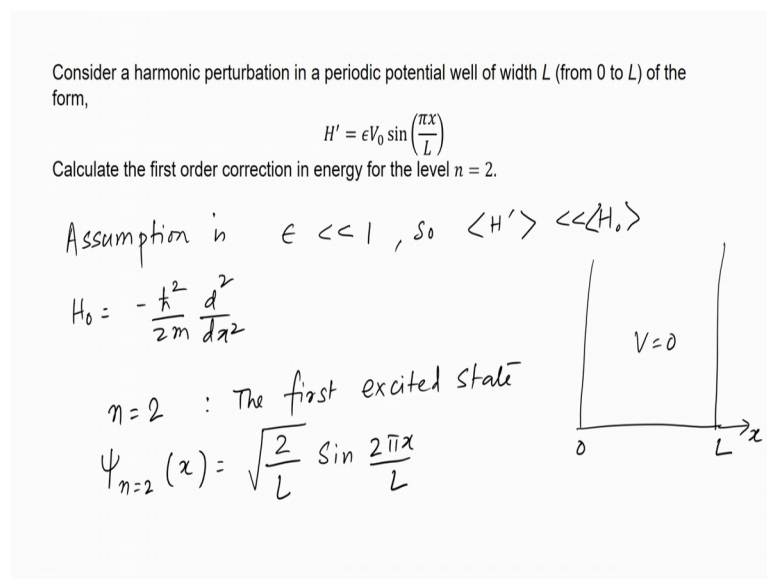 Consider a harmonic perturbation in a periodic potential well of width L (from 0 to L) of the
form,
H′ = ϵV₀ sin(πx/L)
Calculate the first order correction in energy for the level n = 2.
Assumption is ϵ << 1 , so <H'> <<<H₀>
H₀ = - ħ²/2m d²/dx²
V=0
n=2 : The first excited state
0 L x
Ψₙ₌₂ (x) = √(2/L) Sin 2πx/L